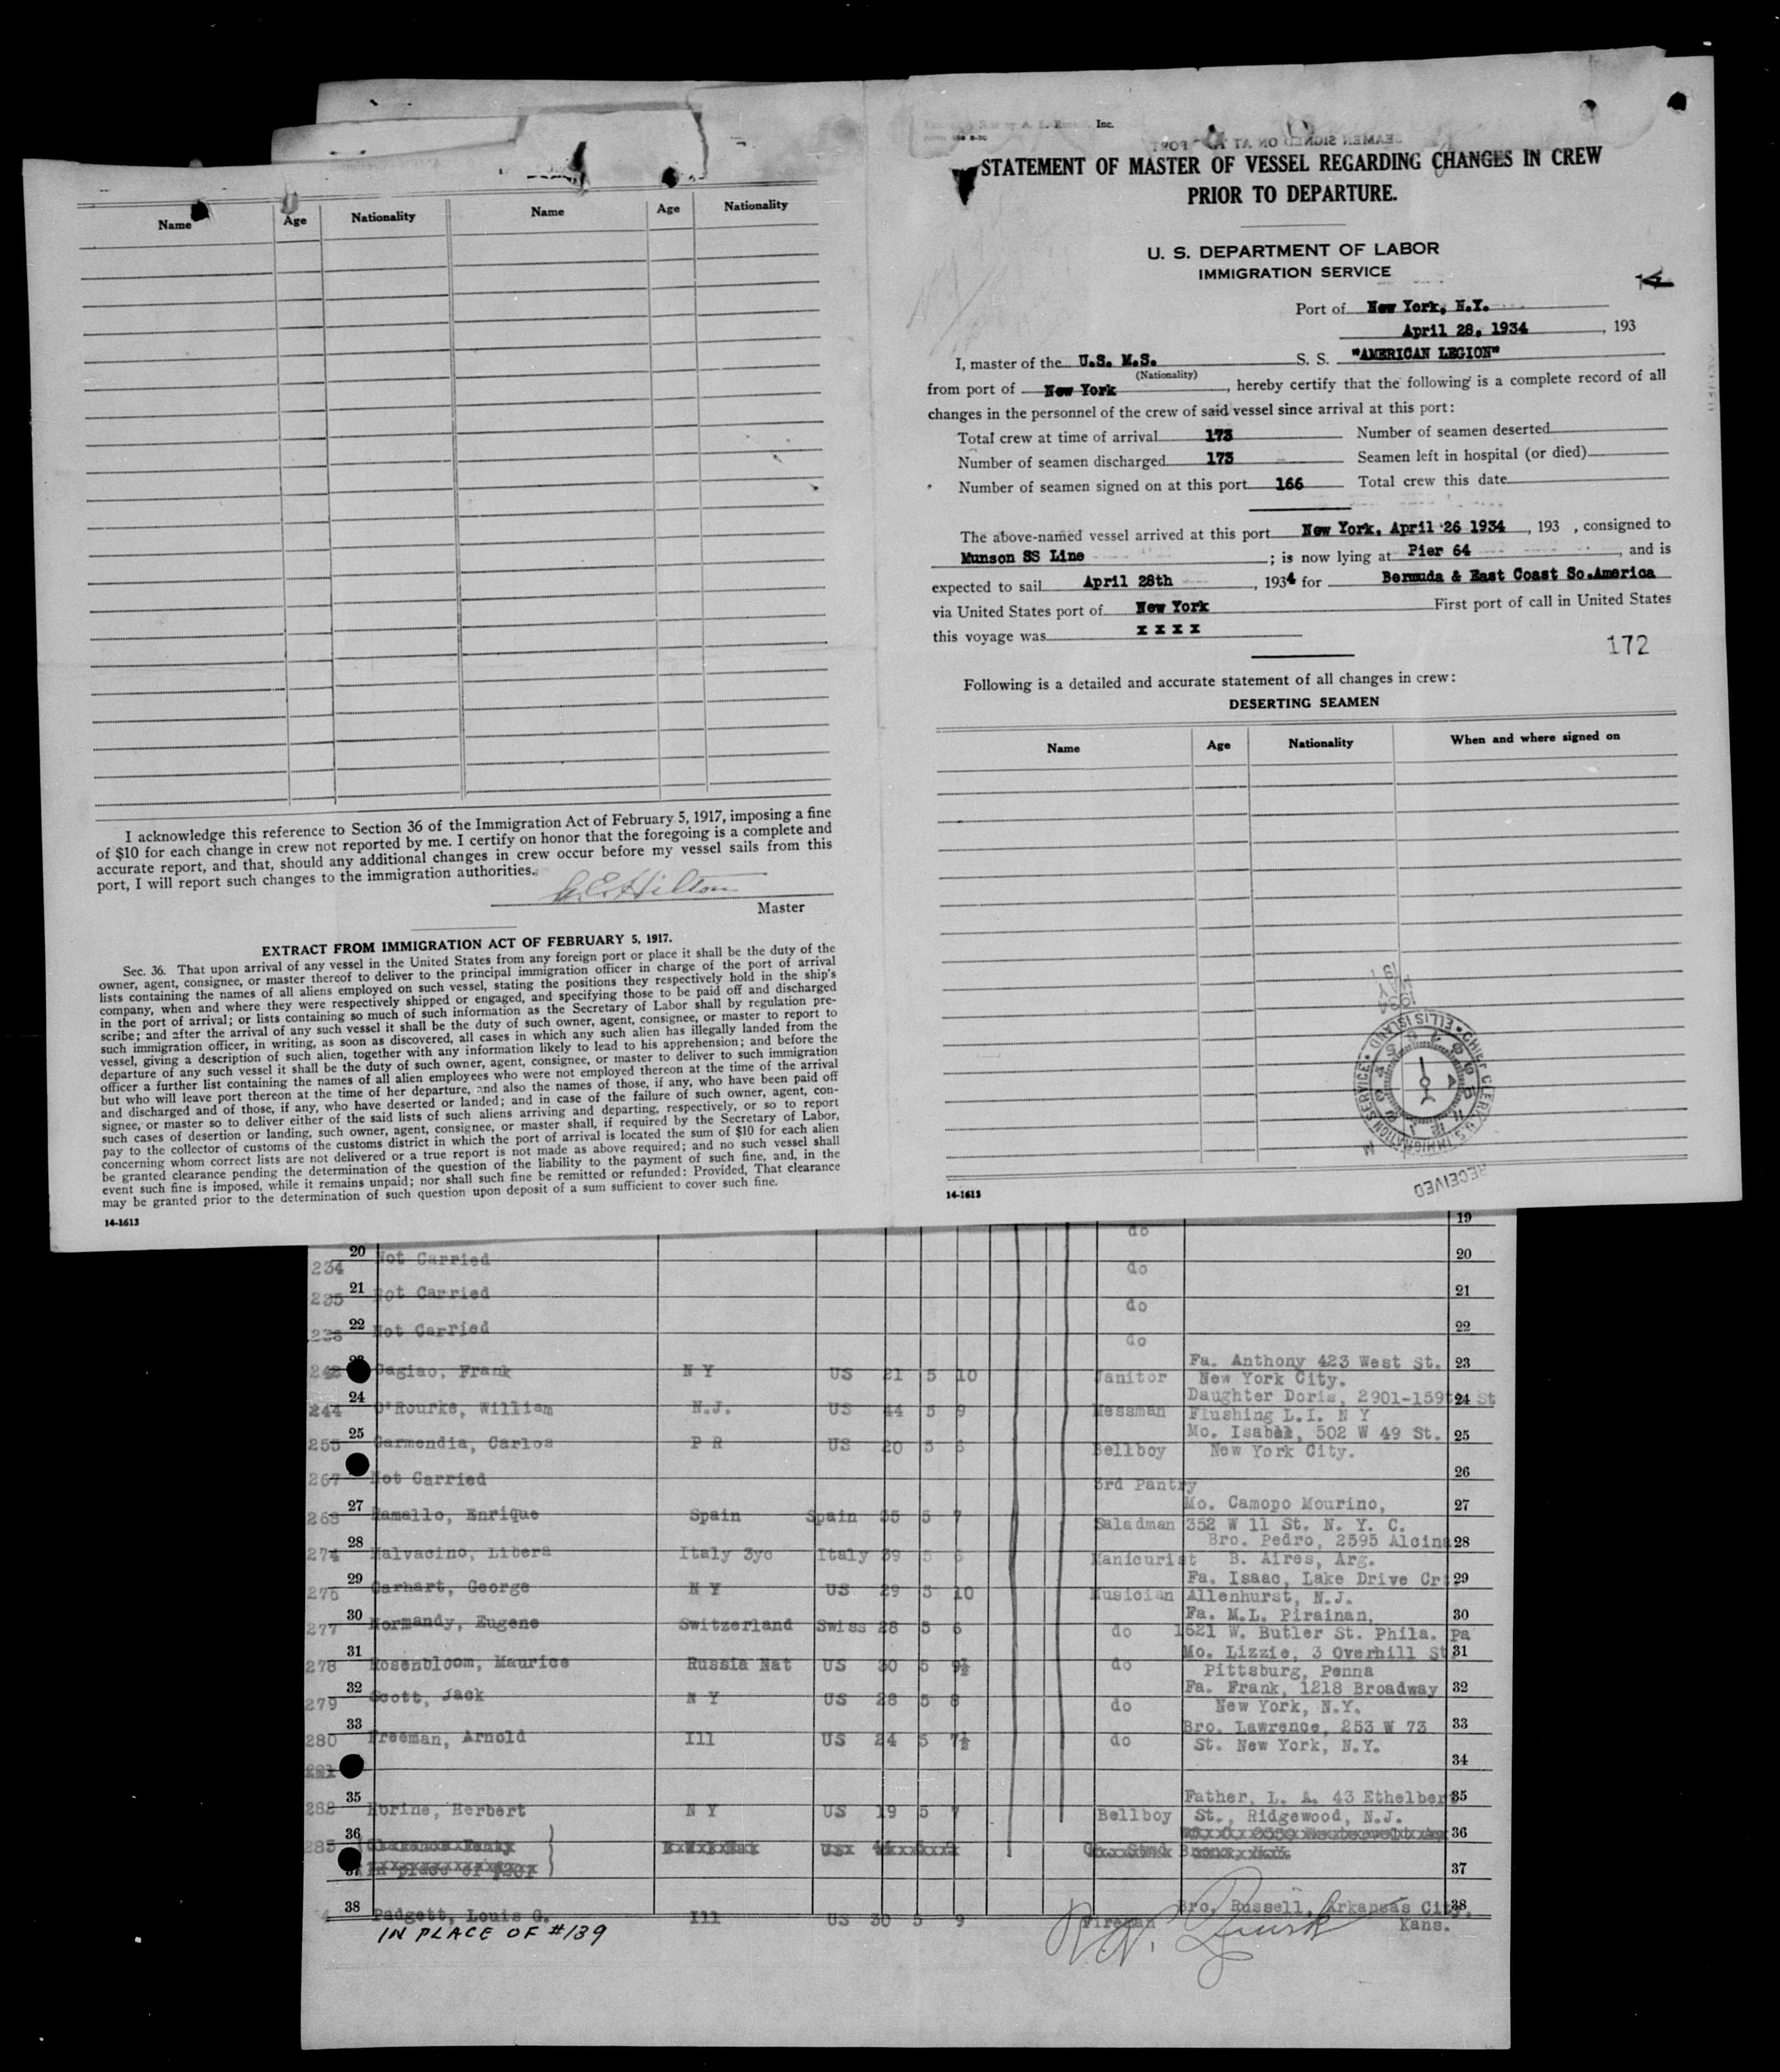 Name Age Nationality Name Age Nationality
I acknowledge this reference to Section 36 of the Immigration Act of February 5, 1917, imposing a fine
of $10 for each change in crew not reported by me. I certify on honor that the foregoing is a complete and
accurate report, and that, should any additional changes in crew occur before my vessel sails from this
port, I will report such changes to the immigration authorities.
Hilton
Master
EXTRACT FROM IMMIGRATION ACT OF FEBRUARY 5, 1917.
Sec. 36. That upon arrival of any vessel in the United States from any foreign port or place it shall be the duty of the
owner, agent, consignee, or master thereof to deliver to the principal immigration officer in charge of the port of arrival
lists containing the names of all aliens employed on such vessel, stating the positions they respectively hold in the ship's
company, when and where they were respectively shipped or engaged, and specifying those to be paid off and discharged
in the port of arrival; or lists containing so much of such information as the Secretary of Labor shall by regulation pre-
scribe; and after the arrival of any such vessel it shall be the duty of such owner, agent, consignee, or master to report to
such immigration officer, in writing, as soon as discovered, all cases in which any such alien has illegally landed from the
vessel, giving a description of such alien, together with any information likely to lead to his apprehension; and before the
departure of any such vessel it shall be the duty of such owner, agent, consignee, or master to deliver to such immigration
officer a further list containing the names of all alien employees who were not employed thereon at the time of the arrival
but who will leave port thereon at the time of her departure, and also the names of those, if any, who have been paid off
and discharged and of those, if any, who have deserted or landed; and in case of the failure of such owner, agent, con-
signee, or master so to deliver either of the said lists of such aliens arriving and departing, respectively, or so to report
such cases of desertion or landing, such owner, agent, consignee, or master shall, if required by the Secretary of Labor,
pay to the collector of customs of the customs district in which the port of arrival is located the sum of $10 for each alien
concerning whom correct lists are not delivered or a true report is not made as above required; and no such vessel shall
be granted clearance pending the determination of the question of the liability to the payment of such fine, and, in the
event such fine is imposed, while it remains unpaid; nor shall such fine be remitted or refunded: Provided, That clearance
may be granted prior to the determination of such question upon deposit of a sum sufficient to cover such fine.
14-1613
Inc.
STATEMENT OF MASTER OF VESSEL REGARDING CHANGES IN CREW
PRIOR TO DEPARTURE.
U. S. DEPARTMENT OF LABOR
IMMIGRATION SERVICE
Port of New York, N.Y.
April 28, 1934, 193
I, master of the U.S. M.S. S. S. "AMERICAN LEGION"
(Nationality)
from port of New York, hereby certify that the following is a complete record of all
changes in the personnel of the crew of said vessel since arrival at this port:
Total crew at time of arrival 173 Number of seamen deserted
Number of seamen discharged 173 Seamen left in hospital (or died)
Number of seamen signed on at this port 166 Total crew this date
The above-named vessel arrived at this port New York, April 26 1934, 193 , consigned to
Munson SS Line ; is now lying at Pier 64, and is
expected to sail April 28th, 1934 for Bermuda & East Coast So.America
via United States port of New York First port of call in United States
this voyage was x x x x
172
Following is a detailed and accurate statement of all changes in crew:
DESERTING SEAMEN
Name Age Nationality When and where signed on
1934
MAY
RECEIVED
14-1613
do 19
234 20 Not Carried do 20
235 21 Not Carried do 21
22 Not Carried do 22
Fa. Anthony 423 West St. 23
Gagiao, Frank N Y US 21 5 10 Janitor New York City.
24 Daughter Doris, 2901-159th St 24
244 O'Rourke, William N.J. US 44 5 9 Messman Flushing L.I. N Y
25 Mo. Isabel, 502 W 49 St. 25
255 Garmendia, Carlos P R US 20 5 6 Bellboy New York City.
267 Not Carried 3rd Pantry 26
27 Mo. Camopo Mourino, 27
268 Ramallo, Enrique Spain Spain 35 5 7 Saladman 352 W 11 St. N. Y. C.
28 Bro. Pedro, 2595 Alcina 28
274 Malvacino, Libera Italy 3yc Italy 39 5 6 Manicurist B. Aires, Arg.
29 Fa. Isaac, Lake Drive Cr 29
276 Carhart, George N Y US 29 5 10 Musician Allenhurst, N.J.
30 Fa. M.L. Pirainan, 30
277 Normandy, Eugene Switzerland Swiss 28 5 6 do 1621 W. Butler St. Phila. Pa
31 Mo. Lizzie, 3 Overhill St 31
278 Rosenbloom, Maurice Russia Nat US 30 5 9½ do Pittsburg, Penna
32 Fa. Frank, 1218 Broadway 32
279 Scott, Jack N Y US 28 5 8 do New York, N.Y.
33 Bro. Lawrence, 253 W 73 33
280 Freeman, Arnold Ill US 24 5 7½ do St. New York, N.Y.
34
35 Father, L. A. 43 Ethelber 35
282 Horine, Herbert N Y US 19 5 7 Bellboy St., Ridgewood, N.J.
36 36
283
37 in place of 37
38 Bro. Russell, Arkansas City, 38
Padgett, Louis G. Ill US 30 5 9 Fireman Kans.
IN PLACE OF #139